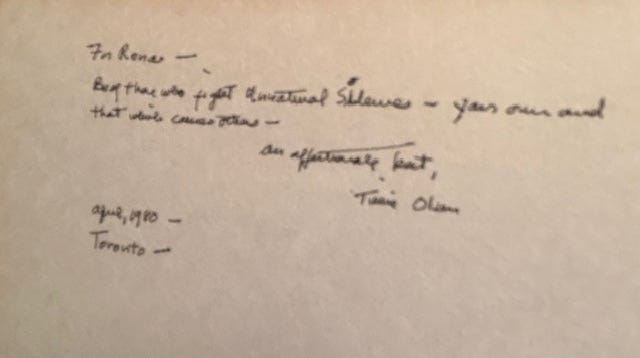 For Rona —
who fight Unnatural Silences — your own and
that which others —
an affectionate
Tillie Olsen
April, 1980 —
Toronto —